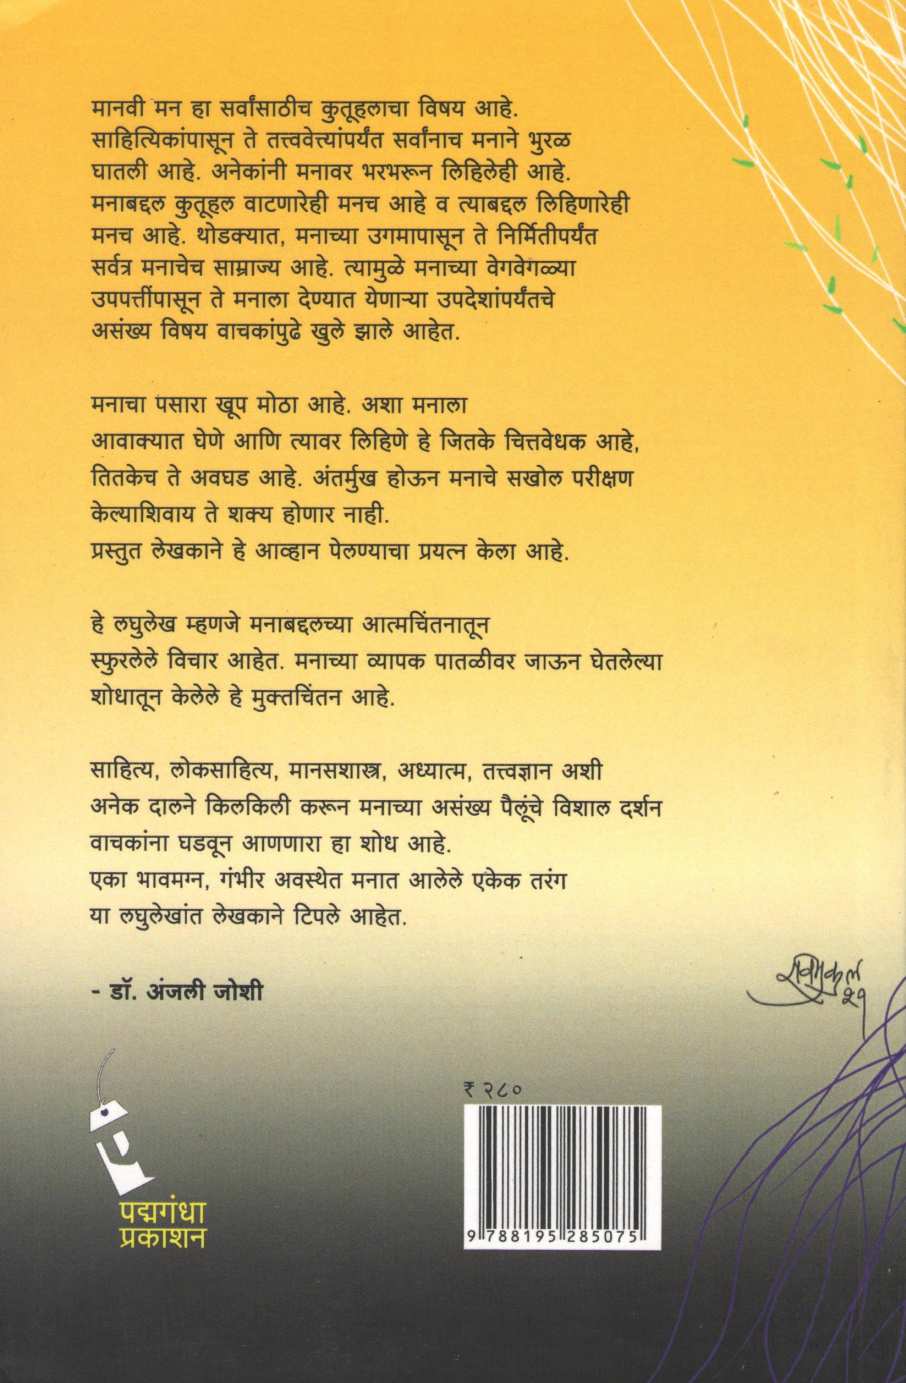 मानवी मन हा सर्वांसाठीच कुतूहलाचा विषय आहे.
साहित्यिकांपासून ते तत्त्ववेत्त्यांपर्यंत सर्वांनाच मनाने भुरळ
घातली आहे. अनेकांनी मनावर भरभरून लिहिलेही आहे.
मनाबद्दल कुतूहल वाटणारेही मनच आहे व त्याबद्दल लिहिणारेही
मनच आहे. थोडक्यात, मनाच्या उगमापासून ते निर्मितीपर्यंत
सर्वत्र मनाचेच साम्राज्य आहे. त्यामुळे मनाच्या वेगवेगळ्या
उपपत्तींपासून ते मनाला देण्यात येणाऱ्या उपदेशांपर्यंतचे
असंख्य विषय वाचकांपुढे खुले झाले आहेत.
मनाचा पसारा खूप मोठा आहे. अशा मनाला
आवाक्यात घेणे आणि त्यावर लिहिणे हे जितके चित्तवेधक आहे,
तितकेच ते अवघड आहे. अंतर्मुख होऊन मनाचे सखोल परीक्षण
केल्याशिवाय ते शक्य होणार नाही.
प्रस्तुत लेखकाने हे आव्हान पेलण्याचा प्रयत्न केला आहे.
हे लघुलेख म्हणजे मनाबद्दलच्या आत्मचिंतनातून
स्फुरलेले विचार आहेत. मनाच्या व्यापक पातळीवर जाऊन घेतलेल्या
शोधातून केलेले हे मुक्तचिंतन आहे.
साहित्य, लोकसाहित्य, मानसशास्त्र, अध्यात्म, तत्त्वज्ञान अशी
अनेक दालने किलकिली करून मनाच्या असंख्य पैलूंचे विशाल दर्शन
वाचकांना घडवून आणणारा हा शोध आहे.
एका भावमग्न, गंभीर अवस्थेत मनात आलेले एकेक तरंग
या लघुलेखांत लेखकाने टिपले आहेत.
- डॉ. अंजली जोशी
रविमुकुल
२१
₹ २८०
9 788195 285075
पद्मगंधा
प्रकाशन